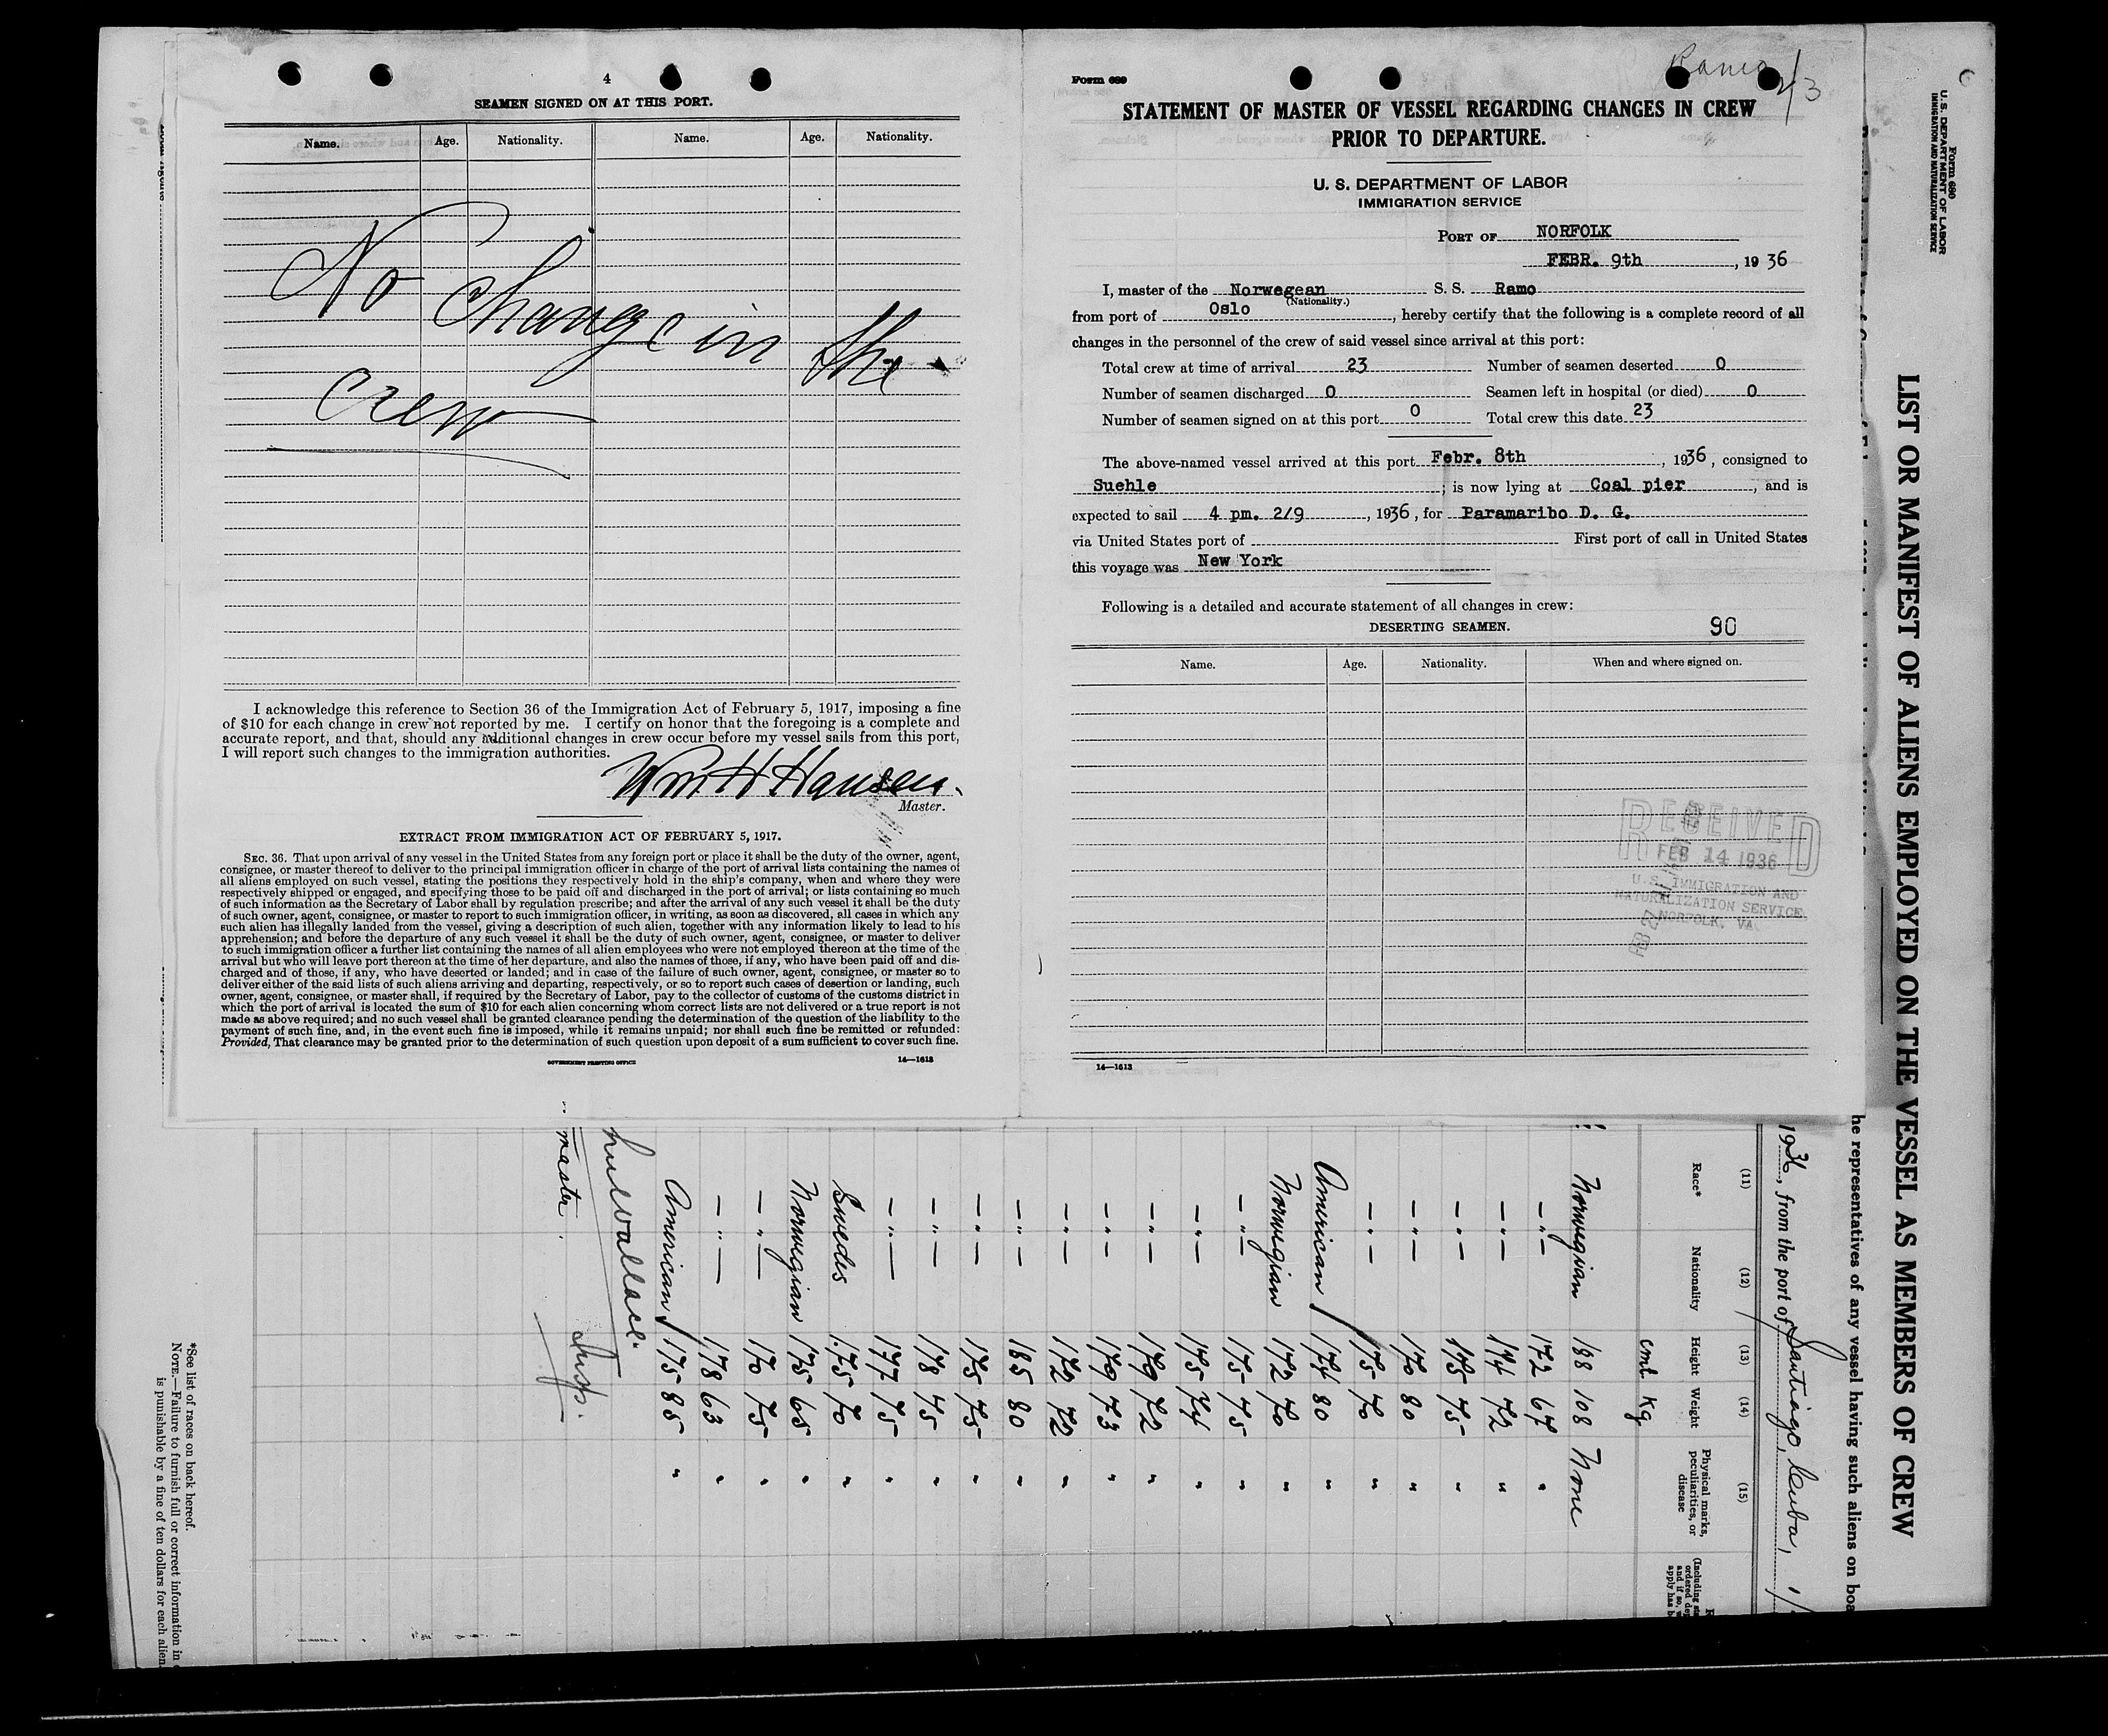 4
SEAMEN SIGNED ON AT THIS PORT.
Name. Age. Nationality. Name. Age. Nationality.
No Change in the
crew
I acknowledge this reference to Section 36 of the Immigration Act of February 5, 1917, imposing a fine
of $10 for each change in crew not reported by me. I certify on honor that the foregoing is a complete and
accurate report, and that, should any additional changes in crew occur before my vessel sails from this port,
I will report such changes to the immigration authorities.
Wm H Hansen.
Master.
EXTRACT FROM IMMIGRATION ACT OF FEBRUARY 5, 1917.
SEC. 36. That upon arrival of any vessel in the United States from any foreign port or place it shall be the duty of the owner, agent,
consignee, or master thereof to deliver to the principal immigration officer in charge of the port of arrival lists containing the names of
all aliens employed on such vessel, stating the positions they respectively hold in the ship's company, when and where they were
respectively shipped or engaged, and specifying those to be paid off and discharged in the port of arrival; or lists containing so much
of such information as the Secretary of Labor shall by regulation prescribe; and after the arrival of any such vessel it shall be the duty
of such owner, agent, consignee, or master to report to such immigration officer, in writing, as soon as discovered, all cases in which any
such alien has illegally landed from the vessel, giving a description of such alien, together with any information likely to lead to his
apprehension; and before the departure of any such vessel it shall be the duty of such owner, agent, consignee, or master to deliver
to such immigration officer a further list containing the names of all alien employees who were not employed thereon at the time of the
arrival but who will leave port thereon at the time of her departure, and also the names of those, if any, who have been paid off and dis-
charged and of those, if any, who have deserted or landed; and in case of the failure of such owner, agent, consignee, or master so to
deliver either of the said lists of such aliens arriving and departing, respectively, or so to report such cases of desertion or landing, such
owner, agent, consignee, or master shall, if required by the Secretary of Labor, pay to the collector of customs of the customs district in
which the port of arrival is located the sum of $10 for each alien concerning whom correct lists are not delivered or a true report is not
made as above required; and no such vessel shall be granted clearance pending the determination of the question of the liability to the
payment of such fine, and, in the event such fine is imposed, while it remains unpaid; nor shall such fine be remitted or refunded:
Provided, That clearance may be granted prior to the determination of such question upon deposit of a sum sufficient to cover such fine.
GOVERNMENT PRINTING OFFICE 14—1613
Form 689
Ramo 2/3
STATEMENT OF MASTER OF VESSEL REGARDING CHANGES IN CREW
PRIOR TO DEPARTURE.
U. S. DEPARTMENT OF LABOR
IMMIGRATION SERVICE
PORT OF NORFOLK
FEBR. 9th, 19 36
I, master of the Norwegean S. S. Ramo
(Nationality.)
from port of Oslo, hereby certify that the following is a complete record of all
changes in the personnel of the crew of said vessel since arrival at this port:
Total crew at time of arrival 23 Number of seamen deserted 0
Number of seamen discharged 0 Seamen left in hospital (or died) 0
Number of seamen signed on at this port 0 Total crew this date 23
The above-named vessel arrived at this port Febr. 8th, 1936, consigned to
Suehle; is now lying at Coal pier, and is
expected to sail 4 pm. 2/9, 1936, for Paramaribo D. G.
via United States port of First port of call in United States
this voyage was New York
Following is a detailed and accurate statement of all changes in crew:
DESERTING SEAMEN. 90
Name. Age. Nationality. When and where signed on.
RECEIVED
FEB 14 1936
U.S. IMMIGRATION AND
NATURALIZATION SERVICE
NORFOLK, VA.
14—1613
Form 680
U. S. DEPARTMENT OF LABOR
IMMIGRATION AND NATURALIZATION SERVICE
LIST OR MANIFEST OF ALIENS EMPLOYED ON THE VESSEL AS MEMBERS OF CREW
he representatives of any vessel having such aliens on boa
1936, from the port of Santiago, Cuba,
(11) (12) (13) (14) (15)
Race* Nationality Height Weight Physical marks, peculiarities, or disease
cmt Kg
Norwegian 188 108 None
—„— 172 67 "
—„— 174 72 "
—„— 175 75 "
—„— 170 80 "
—„— 175 70 "
American 174 80 "
Norwegian 172 70 "
—„— 175 75 "
—„— 175 74 "
—„— 179 72 "
—„— 179 73 "
—„— 172 72 "
—„— 185 80 "
—„— 175 75 "
—„— 178 75 "
—„— 177 75 "
Swedes 175 70 "
Norwegian 175 65 "
—„— 170 75 "
—„— 178 63 "
American 175 85 "
Insp.
master.
*See list of races on back hereof.
NOTE.—Failure to furnish full or correct information in
is punishable by a fine of ten dollars for each alien